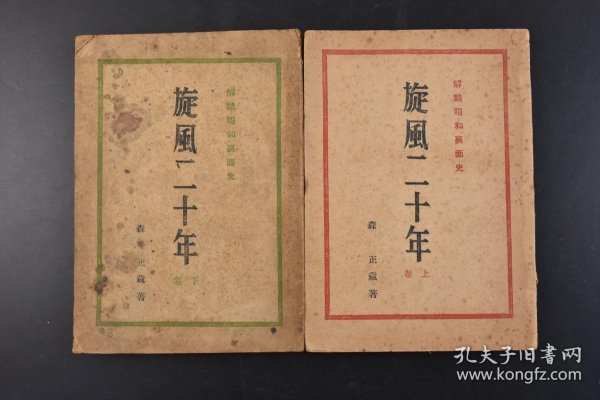 解禁昭和裏面史
旋風二十年
下卷
森正蔵著
解禁昭和裏面史
旋風二十年
上卷
森正蔵著
孔夫子旧书网
www.kongfz.com